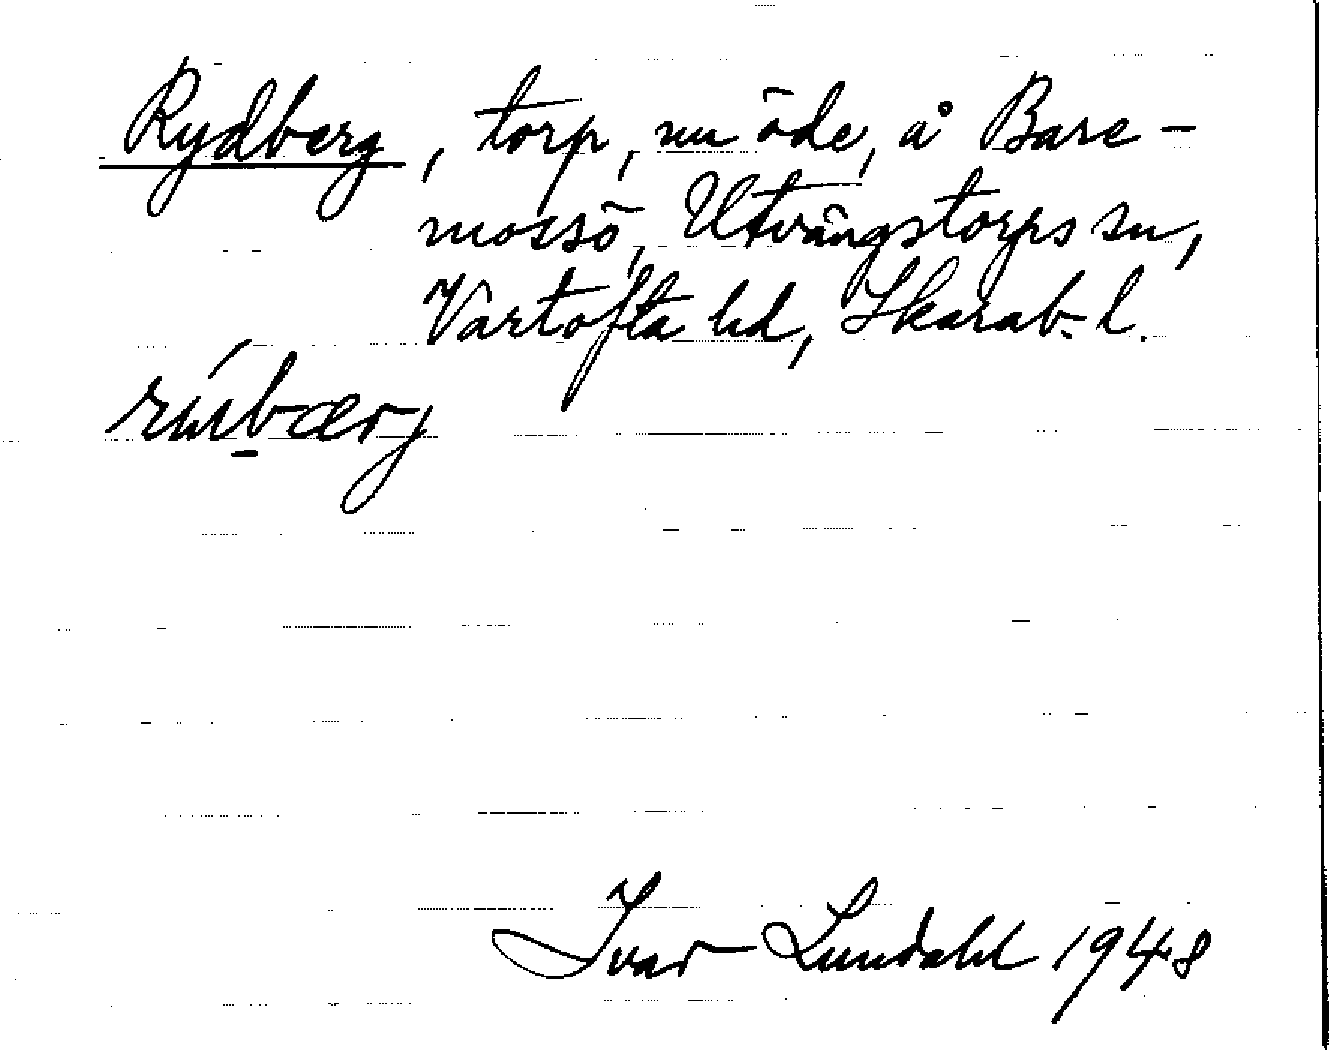 Rydberg, torp, nu öde, å Bare-
mossö, Utvängstorps sn,
Vartofta hd, Skarab. l.
Ivar Lundahl 1948